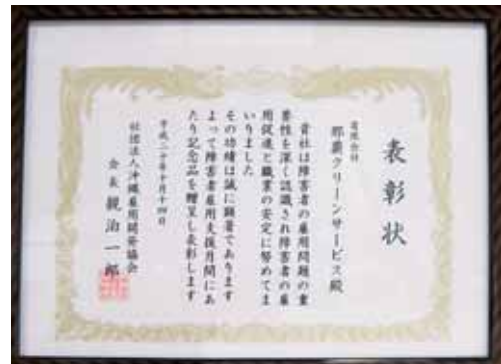 表彰状
有限会社
那覇クリーンサービス殿
貴社は障害者の雇用問題の重
要性を深く認識され障害者の雇
用促進と職業の安定に努めてま
いりました
その功績は誠に顕著であります
よって障害者雇用支援月間にあ
たり記念品を贈呈し表彰します
平成二十年十月十四日
社団法人沖縄雇用開発協会
会長 親泊一郎